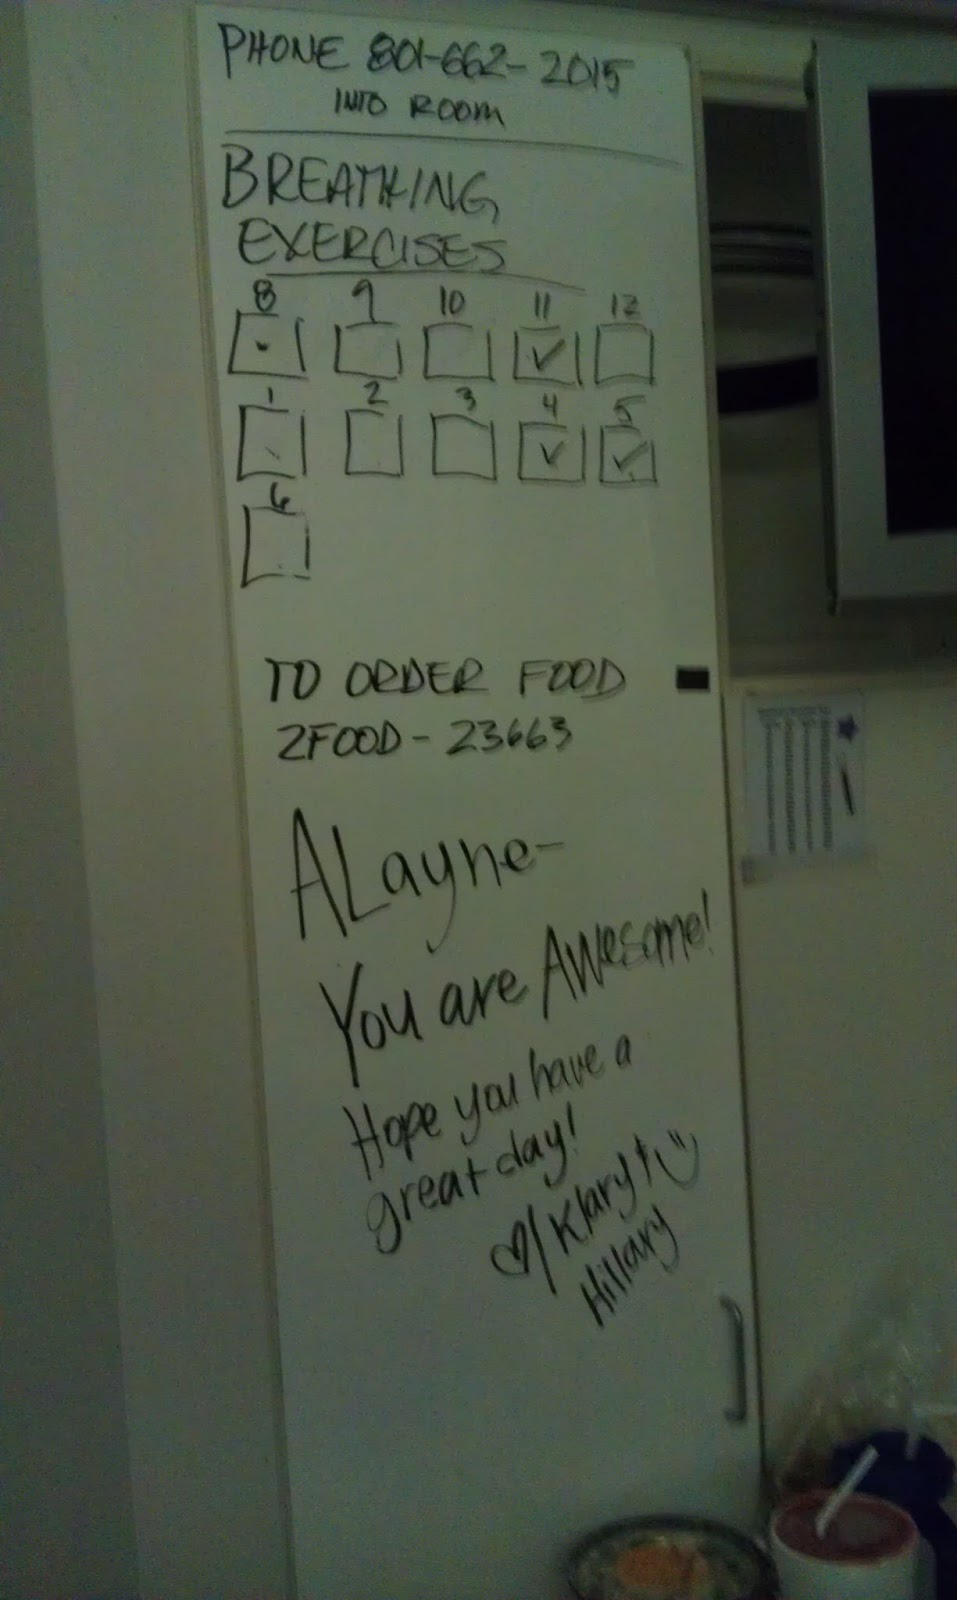 PHONE 801-662-2015
INTO ROOM
BREATHING
EXERCISES
8 9 10 11 12
1 2 3 4 5
6
TO ORDER FOOD
2FOOD - 23663
ALayne-
You are Awesome!
Hope you have a
great day!
♡/ Klary +
Hillary